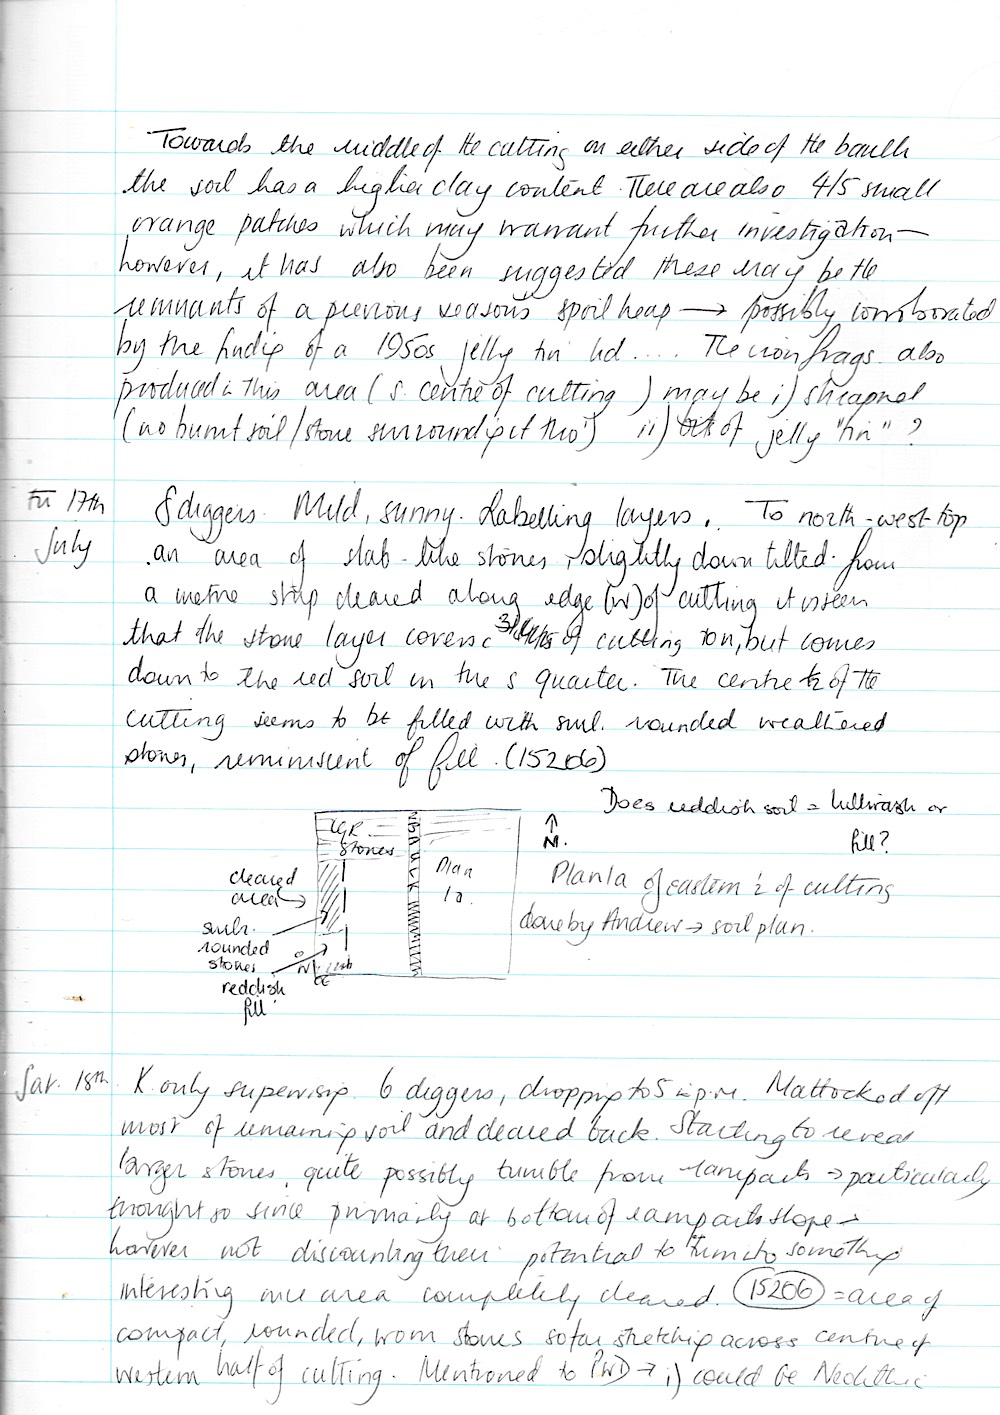 Towards the middle of the cutting on either side of the baulk
the soil has a higher clay content. There are also 4/5 small
orange patches which may warrant further investigation —
however, it has also been suggested these may be the
remnants of a previous seasons spoil heap → possibly corroborated
by the finding of a 1950s jelly tin lid .... The iron frags. also
produced in this area (s. centre of cutting ) may be i) shrapnel
(no burnt soil/stone surrounding it tho') ii) of jelly "tin" ?
Fri 17th
July
8 diggers. Mild, sunny. Labelling layers. To north-west-top
an area of slab-like stones, slightly down tilted. from
a metre strip cleared along edge (W) of cutting it is seen
that the stone layer covers c 3/4 of cutting but comes
down to the red soil in the s quarter. The centre ½ of the
cutting seems to be filled with sml. rounded weathered
stones, reminiscent of fill. (15206)
Does reddish soil = hillwash or
fill?
LGR.
stones
↑
N.
BAULK
Plan
1a.
cleared
area →
Plan 1a of eastern ½ of cutting
done by Andrew → soil plan.
smlr.
rounded
stones
reddish
fill
Sat. 18th
K. only supervising. 6 diggers, dropping to 5 in p.m. Mattocked off
most of remaining soil and cleared back. Starting to reveal
larger stones, quite possibly tumble from ramparts → particularly
thought so since primarily at bottom of ramparts slope →
however not discounting their potential to turn into something
interesting once area completely cleared. (15206) = area of
compact, rounded, worn stones so far stretching across centre of
western half of cutting. Mentioned to PWD → i) could be Neolithic